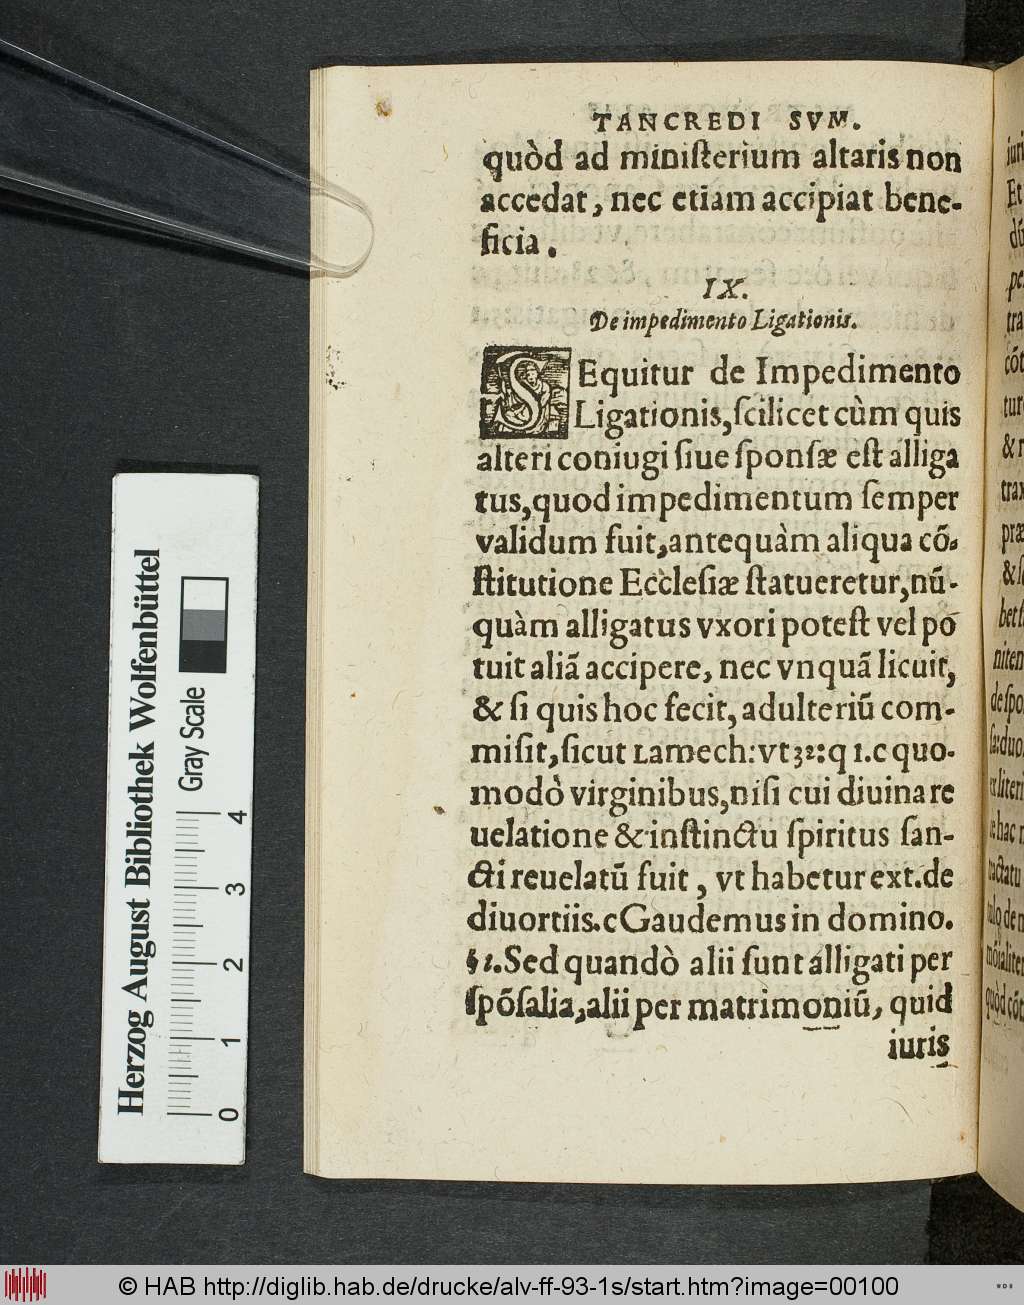 TANCREDI SVM.
quòd ad miniſterium altaris non
accedat, nec etiam accipiat bene-
ficia.
IX.
De impedimento Ligationis.
SEquitur de Impedimento
Ligationis, ſcilicet cùm quis
alteri coniugi ſiue ſponſæ eſt alliga
tus, quod impedimentum ſemper
validum fuit, antequàm aliqua cõ-
ſtitutione Eccleſiæ ſtatueretur, nũ-
quàm alligatus vxori poteſt vel po
tuit aliã accipere, nec vnquã licuit,
& ſi quis hoc fecit, adulteriũ com-
miſit, ſicut Lamech: vt 32: q 1. c quo-
modò virginibus, niſi cui diuina re
uelatione & inſtinctu ſpiritus ſan-
cti reuelatũ fuit, vt habetur ext. de
diuortiis. c Gaudemus in domino.
§ 1. Sed quandò alii ſunt alligati per
ſpõſalia, alii per matrimoniũ, quid
iuris
Herzog August Bibliothek Wolfenbüttel
Gray Scale
0 1 2 3 4
© HAB http://diglib.hab.de/drucke/alv-ff-93-1s/start.htm?image=00100